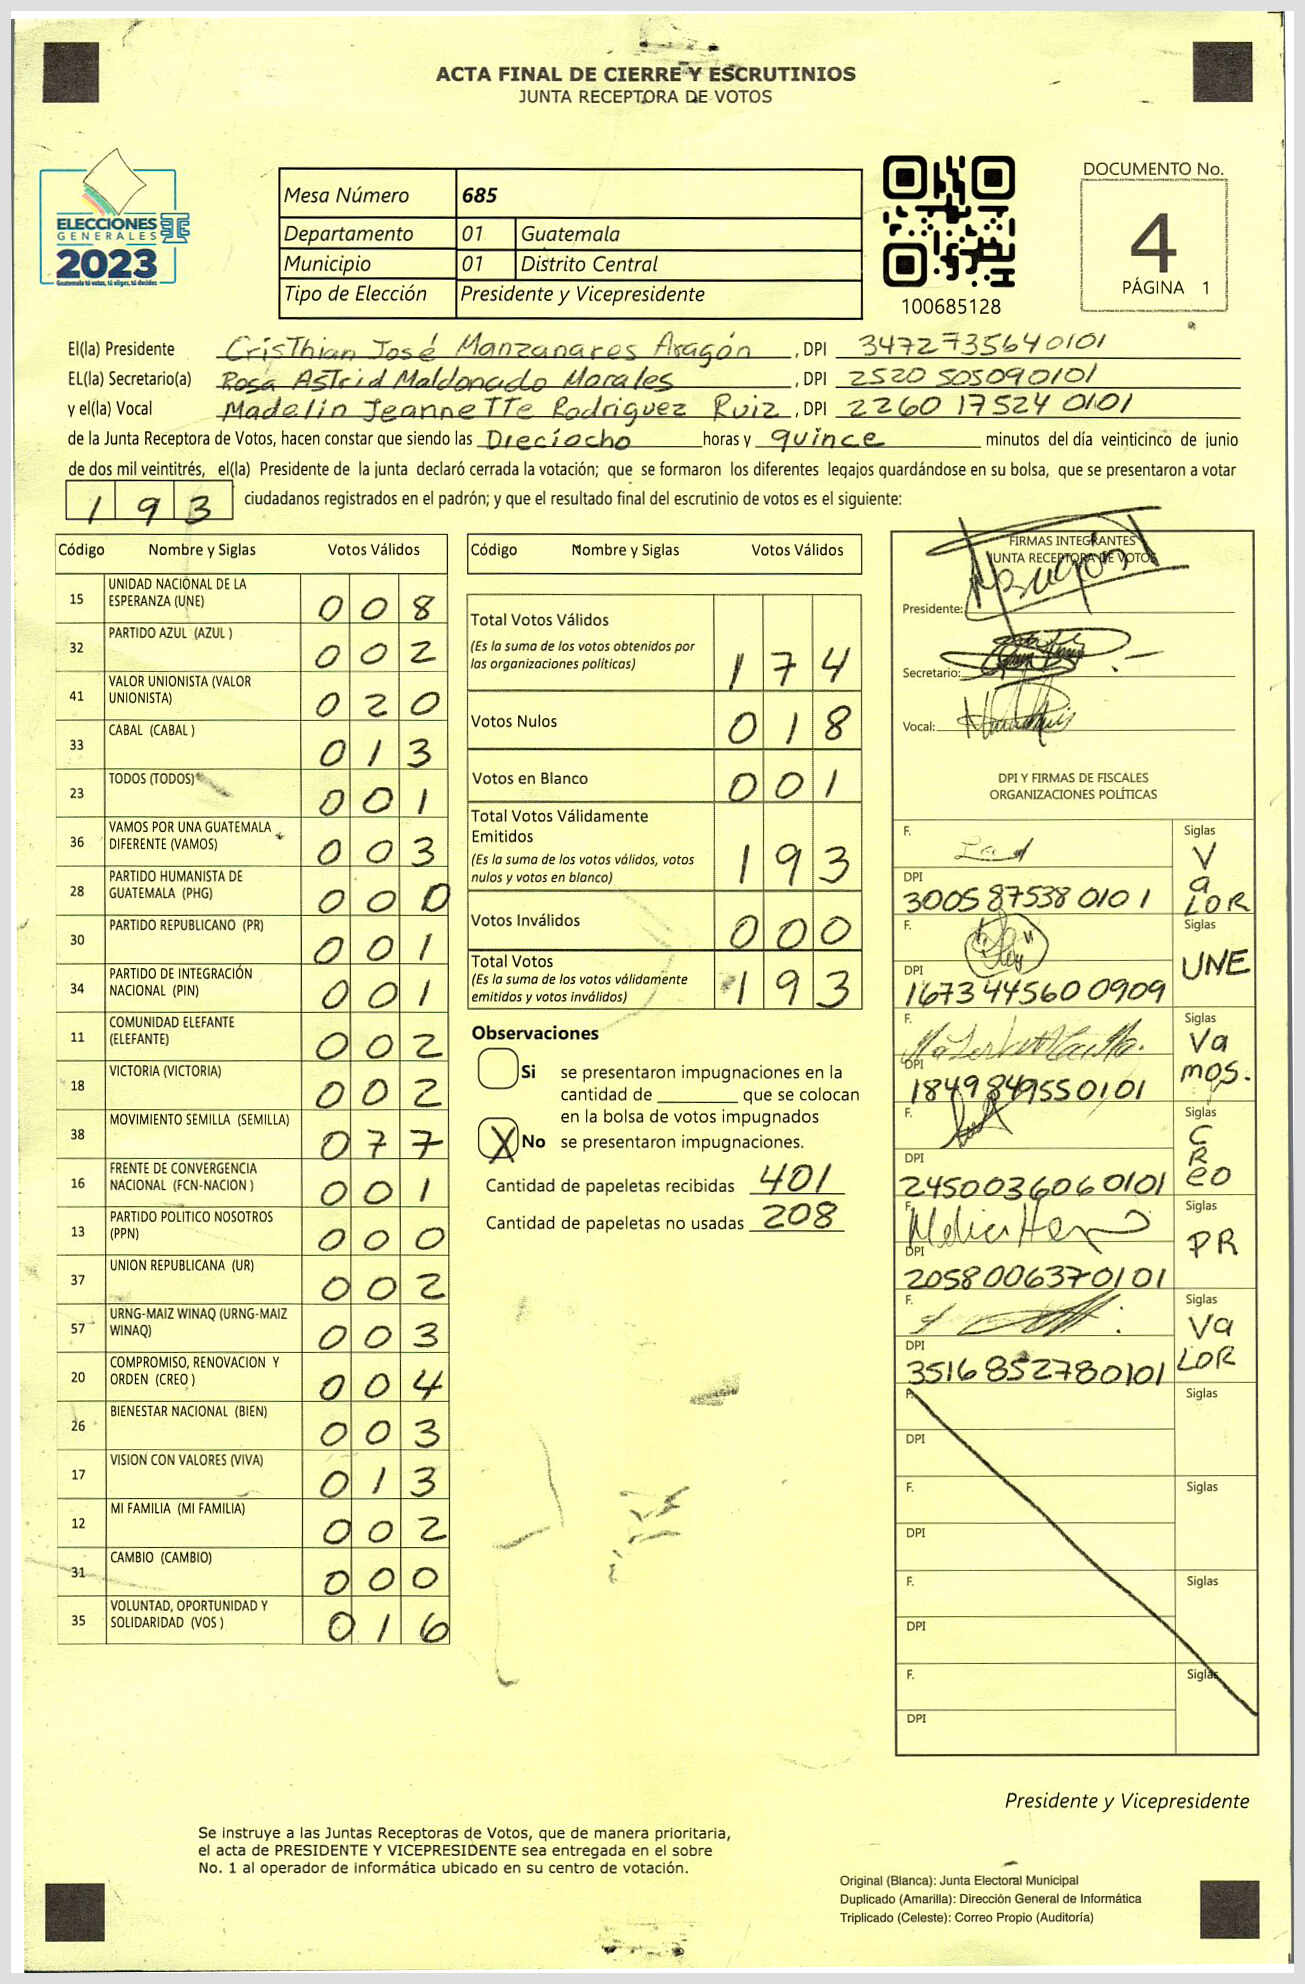 ACTA FINAL DE CIERRE Y ESCRUTINIOS
JUNTA RECEPTORA DE VOTOS
ELECCIONES
GENERALES
2023
Guatemala tú votas, tú eliges, tú decides
Mesa Número 685
Departamento 01 Guatemala
Municipio 01 Distrito Central
Tipo de Elección Presidente y Vicepresidente
100685128
DOCUMENTO No.
4
PÁGINA 1
El(la) Presidente Cristhian José Manzanares Aragón, DPI 3472735640101
EL(la) Secretario(a) Rosa Astrid Maldonado Morales, DPI 2520 505090101
y el(la) Vocal Madelin Jeannette Rodriguez Ruiz, DPI 2260 17524 0101
de la Junta Receptora de Votos, hacen constar que siendo las Dieciocho horas y quince minutos del día veinticinco de junio
de dos mil veintitrés, el(la) Presidente de la junta declaró cerrada la votación; que se formaron los diferentes legajos guardándose en su bolsa, que se presentaron a votar
193 ciudadanos registrados en el padrón; y que el resultado final del escrutinio de votos es el siguiente:
Código Nombre y Siglas Votos Válidos
15 UNIDAD NACIONAL DE LA ESPERANZA (UNE) 008
32 PARTIDO AZUL (AZUL ) 002
41 VALOR UNIONISTA (VALOR UNIONISTA) 020
33 CABAL (CABAL ) 013
23 TODOS (TODOS) 001
36 VAMOS POR UNA GUATEMALA DIFERENTE (VAMOS) 003
28 PARTIDO HUMANISTA DE GUATEMALA (PHG) 000
30 PARTIDO REPUBLICANO (PR) 001
34 PARTIDO DE INTEGRACIÓN NACIONAL (PIN) 001
11 COMUNIDAD ELEFANTE (ELEFANTE) 002
18 VICTORIA (VICTORIA) 002
38 MOVIMIENTO SEMILLA (SEMILLA) 077
16 FRENTE DE CONVERGENCIA NACIONAL (FCN-NACION ) 001
13 PARTIDO POLITICO NOSOTROS (PPN) 000
37 UNION REPUBLICANA (UR) 002
57 URNG-MAIZ WINAQ (URNG-MAIZ WINAQ) 003
20 COMPROMISO, RENOVACION Y ORDEN (CREO ) 004
26 BIENESTAR NACIONAL (BIEN) 003
17 VISION CON VALORES (VIVA) 013
12 MI FAMILIA (MI FAMILIA) 002
31 CAMBIO (CAMBIO) 000
35 VOLUNTAD, OPORTUNIDAD Y SOLIDARIDAD (VOS ) 016
Código Nombre y Siglas Votos Válidos
Total Votos Válidos
(Es la suma de los votos obtenidos por
las organizaciones políticas) 174
Votos Nulos 018
Votos en Blanco 001
Total Votos Válidamente
Emitidos
(Es la suma de los votos válidos, votos
nulos y votos en blanco) 193
Votos Inválidos 000
Total Votos
(Es la suma de los votos válidamente
emitidos y votos inválidos) 193
Observaciones
Si se presentaron impugnaciones en la
cantidad de ________ que se colocan
en la bolsa de votos impugnados
X No se presentaron impugnaciones.
Cantidad de papeletas recibidas 401
Cantidad de papeletas no usadas 208
FIRMAS INTEGRANTES
JUNTA RECEPTORA DE VOTOS
Presidente:
Secretario:
Vocal:
DPI Y FIRMAS DE FISCALES
ORGANIZACIONES POLÍTICAS
F. Siglas VaLOR
DPI 3005 87538 0101
F. Siglas UNE
DPI 1673445600909
F. Siglas Vamos.
DPI 1849849550101
F. Siglas CReo
DPI 2450036060101
F. Siglas PR
DPI 2058006370101
F. Siglas VaLOR
DPI 3516852780101
F. Siglas
DPI
F. Siglas
DPI
F. Siglas
DPI
F. Siglas
DPI
Presidente y Vicepresidente
Se instruye a las Juntas Receptoras de Votos, que de manera prioritaria,
el acta de PRESIDENTE Y VICEPRESIDENTE sea entregada en el sobre
No. 1 al operador de informática ubicado en su centro de votación.
Original (Blanca): Junta Electoral Municipal
Duplicado (Amarilla): Dirección General de Informática
Triplicado (Celeste): Correo Propio (Auditoría)